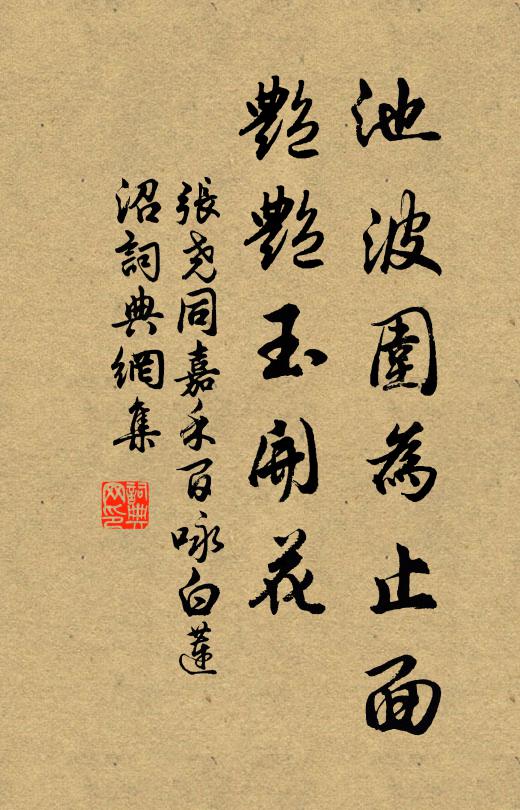 池波圍為止面
艷艷玉開花
張堯同嘉禾百咏白蓮
沼詞典網集
詞典網印